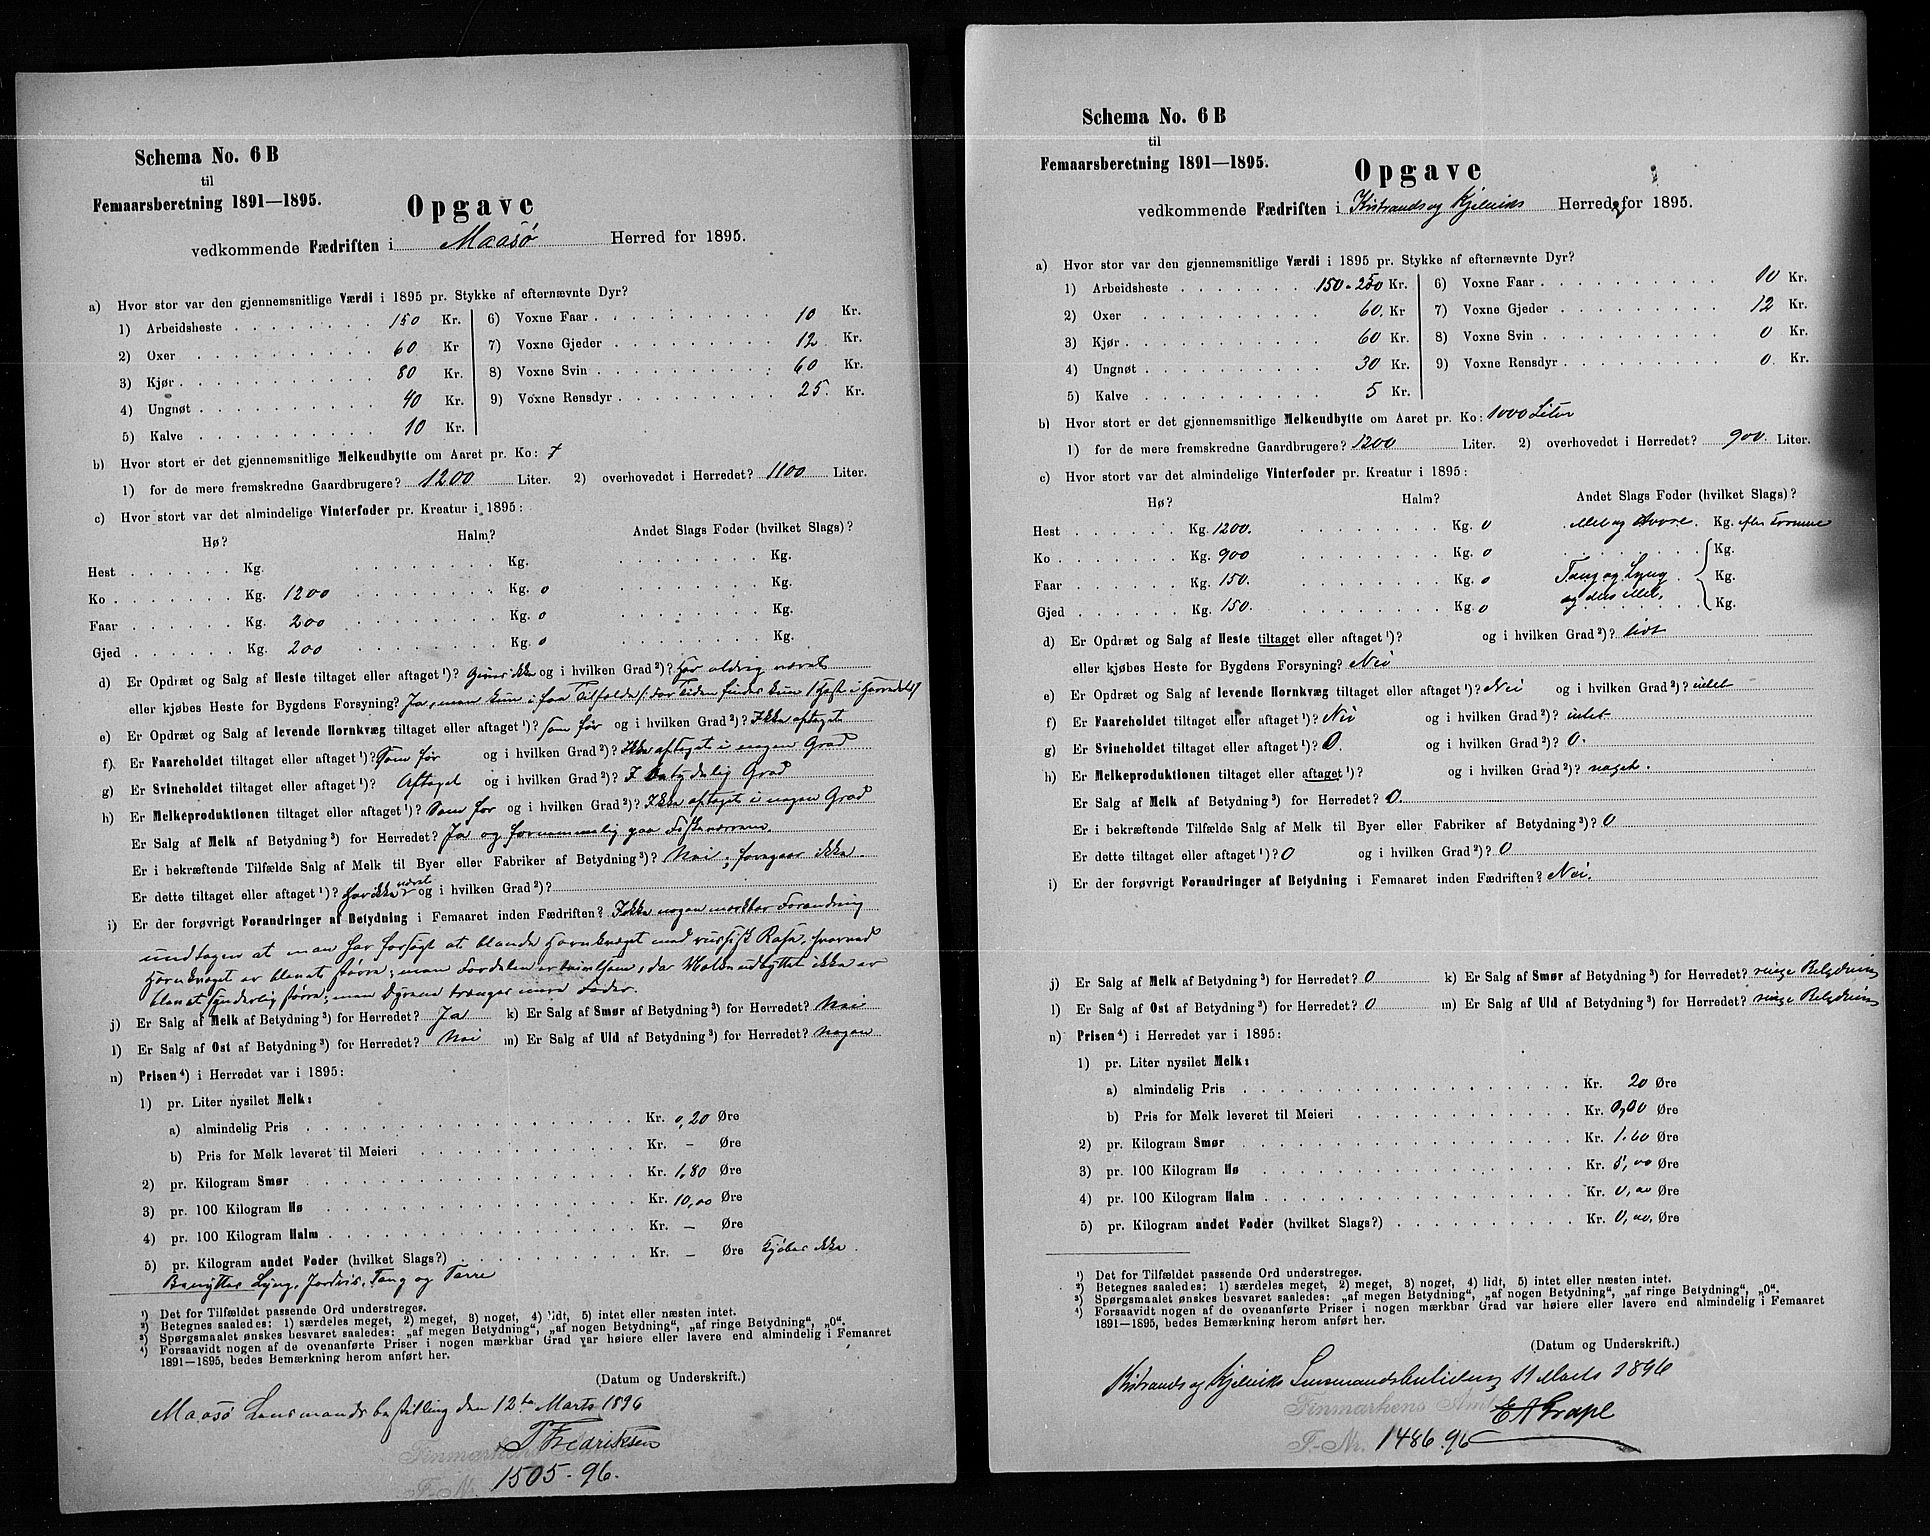 Schema No. 6 B
til
Femaarsberetning 1891—1895.
Opgave
vedkommende Fædriften i Maasø Herred for 1895.
a) Hvor stor var den gjennemsnitlige Værdi i 1895 pr. Stykke af efternævnte Dyr?
1) Arbeidsheste 150 Kr. 6) Voxne Faar 10 Kr.
2) Oxer 60 Kr 7) Voxne Gjeder 12 Kr.
3) Kjør 80 Kr. 8) Voxne Svin 60 Kr.
4) Ungnøt 40 Kr. 9) Voxne Rensdyr 25. Kr.
5) Kalve 10 Kr.
b) Hvor stort er det gjennemsnitlige Melkeudbytte om Aaret pr. Ko:
1) for de mere fremskredne Gaardbrugere? 1200 Liter. 2) overhovedet i Herredet? 1100 Liter.
c) Hvor stort var det almindelige Vinterfoder pr. Kreatur i 1895:
Hø? Halm? Andet Slags Foder (hvilket Slags)?
Hest Kg. Kg. Kg.
Ko Kg. 1200 Kg. 0 Kg.
Faar Kg. 200 Kg. 0 Kg.
Gjed Kg. 200 Kg. 0 Kg.
d) Er Opdræt og Salg af Heste tiltaget eller aftaget¹)? Gives ikke og i hvilken Grad²)? Har aldrig været
eller kjøbes Heste for Bygdens Forsyning? Ja, men kun i faa Tilfælde /: for Tiden findes kun 1 Hest i Herredet :/
e) Er Opdræt og Salg af levende Hornkvæg tiltaget eller aftaget¹)? som før og i hvilken Grad²)? Ikke aftaget
f) Er Faareholdet tiltaget eller aftaget¹)? Som før og i hvilken Grad²)? Ikke aftaget i nogen Grad
g) Er Svineholdet tiltaget eller aftaget¹)? Aftaget og i hvilken Grad²)? I betydelig Grad
h) Er Melkeproduktionen tiltaget eller aftaget¹)? Som før og i hvilken Grad²)? Ikke aftaget i nogen Grad
Er Salg af Melk af Betydning³) for Herredet? Ja og fornemmelig paa Fiskeværene.
Er i bekræftende Tilfælde Salg af Melk til Byer eller Fabriker af Betydning³)? Nei; foregaar ikke.
Er dette tiltaget eller aftaget¹)? Har ikke været og i hvilken Grad²)?
i) Er der forøvrigt Forandringer af Betydning i Femaaret inden Fædriften? Ikke nogen mærkbar Forandring
undtagen at man har forsøgt at blande Hornkvæget med russisk Rase, hvorved
Hornkvæget er blevet større; men Fordelen er tvivlsom, da Melkeudbyttet ikke er
blevet synderlig større, men Dyrene trænger mere Foder.
j) Er Salg af Melk af Betydning³) for Herredet? Ja k) Er Salg af Smør af Betydning³) for Herredet? Nei
l) Er Salg af Ost af Betydning³) for Herredet? Nei m) Er Salg af Uld af Betydning³) for Herredet? nogen
n) Prisen⁴) i Herredet var i 1895:
1) pr. Liter nysilet Melk:
a) almindelig Pris Kr. 0,20 Øre
b) Pris for Melk leveret til Meieri Kr. – Øre
2) pr. Kilogram Smør Kr. 1,80 Øre
3) pr. 100 Kilogram Hø Kr. 10,00 Øre
4) pr. 100 Kilogram Halm Kr. – Øre
5) pr. Kilogram andet Foder (hvilket Slags?) Kr. – Øre Kjøbes ikke.
Benyttes Lyng, Jordris, Tang og Tarre
¹) Det for Tilfældet passende Ord understreges.
²) Betegnes saaledes: 1) særdeles meget, 2) meget, 3) noget, 4) lidt, 5) intet eller næsten intet.
³) Spørgsmaalet ønskes besvaret saaledes: „af megen Betydning“, „af nogen Betydning“, „af ringe Betydning“, „0“.
⁴) Forsaavidt nogen af de ovenanførte Priser i nogen mærkbar Grad var høiere eller lavere end almindelig i Femaaret
1891—1895, bedes Bemærkning herom anført her.
(Datum og Underskrift.)
Maasø Lensmandsbestilling den 12te Marts 1896
T Fredriksen
Finmarkens Amt
F.-Nr. 1505-96.
Schema No. 6 B
til
Femaarsberetning 1891—1895.
Opgave
vedkommende Fædriften i Kistrands og Kjelviks Herred for 1895.
a) Hvor stor var den gjennemsnitlige Værdi i 1895 pr. Stykke af efternævnte Dyr?
1) Arbeidsheste 150-250 Kr. 6) Voxne Faar 10 Kr.
2) Oxer 60. Kr 7) Voxne Gjeder 12 Kr.
3) Kjør 60 Kr. 8) Voxne Svin 0 Kr.
4) Ungnøt 30 Kr. 9) Voxne Rensdyr 0. Kr.
5) Kalve 5 Kr.
b) Hvor stort er det gjennemsnitlige Melkeudbytte om Aaret pr. Ko: 1000 Liter
1) for de mere fremskredne Gaardbrugere? 1200 Liter. 2) overhovedet i Herredet? 900 Liter.
c) Hvor stort var det almindelige Vinterfoder pr. Kreatur i 1895:
Hø? Halm? Andet Slags Foder (hvilket Slags)?
Hest Kg. 1200. Kg. 0 Mel og Havre. Kg.
Ko Kg. 900 Kg. 0 Kg.
Faar Kg. 150. Kg. 0 Tang og Lyng Kg.
Gjed Kg. 150. Kg. 0 og dels Mel, Kg.
d) Er Opdræt og Salg af Heste tiltaget eller aftaget¹)? og i hvilken Grad²)? lidt
eller kjøbes Heste for Bygdens Forsyning? Nei
e) Er Opdræt og Salg af levende Hornkvæg tiltaget eller aftaget¹)? Nei og i hvilken Grad²)? intet
f) Er Faareholdet tiltaget eller aftaget¹)? Nei og i hvilken Grad²)? intet
g) Er Svineholdet tiltaget eller aftaget¹)? 0. og i hvilken Grad²)? 0.
h) Er Melkeproduktionen tiltaget eller aftaget¹)? og i hvilken Grad²)? noget.
Er Salg af Melk af Betydning³) for Herredet? 0.
Er i bekræftende Tilfælde Salg af Melk til Byer eller Fabriker af Betydning³)? 0
Er dette tiltaget eller aftaget¹)? 0 og i hvilken Grad²)? 0
i) Er der forøvrigt Forandringer af Betydning i Femaaret inden Fædriften? Nei.
j) Er Salg af Melk af Betydning³) for Herredet? 0 k) Er Salg af Smør af Betydning³) for Herredet? ringe Betydning
l) Er Salg af Ost af Betydning³) for Herredet? 0 m) Er Salg af Uld af Betydning³) for Herredet? ringe Betydning
n) Prisen⁴) i Herredet var i 1895:
1) pr. Liter nysilet Melk:
a) almindelig Pris Kr. 20 Øre
b) Pris for Melk leveret til Meieri Kr. 0,00 Øre
2) pr. Kilogram Smør Kr. 1.60 Øre
3) pr. 100 Kilogram Hø Kr. 5,00 Øre
4) pr. 100 Kilogram Halm Kr. 0,00 Øre
5) pr. Kilogram andet Foder (hvilket Slags?) Kr. 0,00. Øre
¹) Det for Tilfældet passende Ord understreges.
²) Betegnes saaledes: 1) særdeles meget, 2) meget, 3) noget, 4) lidt, 5) intet eller næsten intet.
³) Spørgsmaalet ønskes besvaret saaledes: „af megen Betydning“, „af nogen Betydning“, „af ringe Betydning“, „0“.
⁴) Forsaavidt nogen af de ovenanførte Priser i nogen mærkbar Grad var høiere eller lavere end almindelig i Femaaret
1891—1895, bedes Bemærkning herom anført her.
(Datum og Underskrift.)
Kistrands og Kjelviks Lensmandsbestilling 11 Marts 1896
Finmarkens Amt
E A Grape
F.-Nr. 1486.96